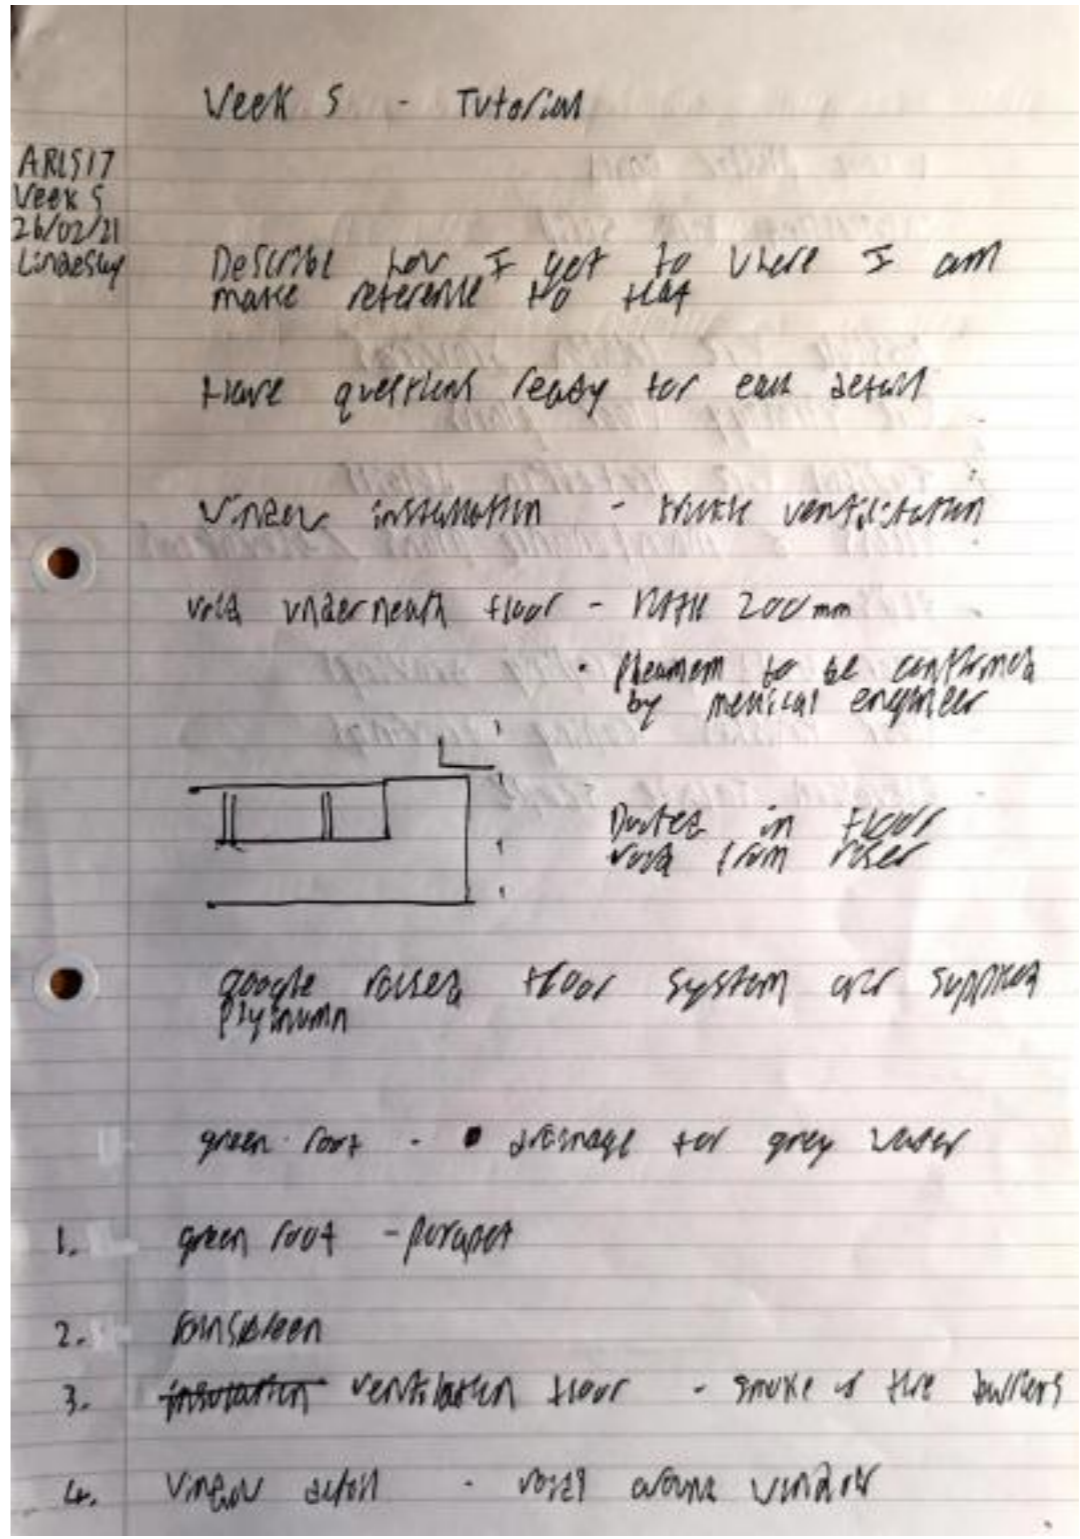 Week 5 - Tutorial
ARL517
Week 5
26/02/21
Describe how I got to where I am
make reference to that
Have questions ready for each detail
Window installation - trickle ventilation
void underneath floor - 200mm
· to be confirmed
by engineer
Ducted in floor
void from riser
google raised floor system air supplied
green roof - drainage for grey water
1. green roof - parapet
2. rainscreen
3. insulation ventilation floor - smoke fire barriers
4. Window detail - void around window